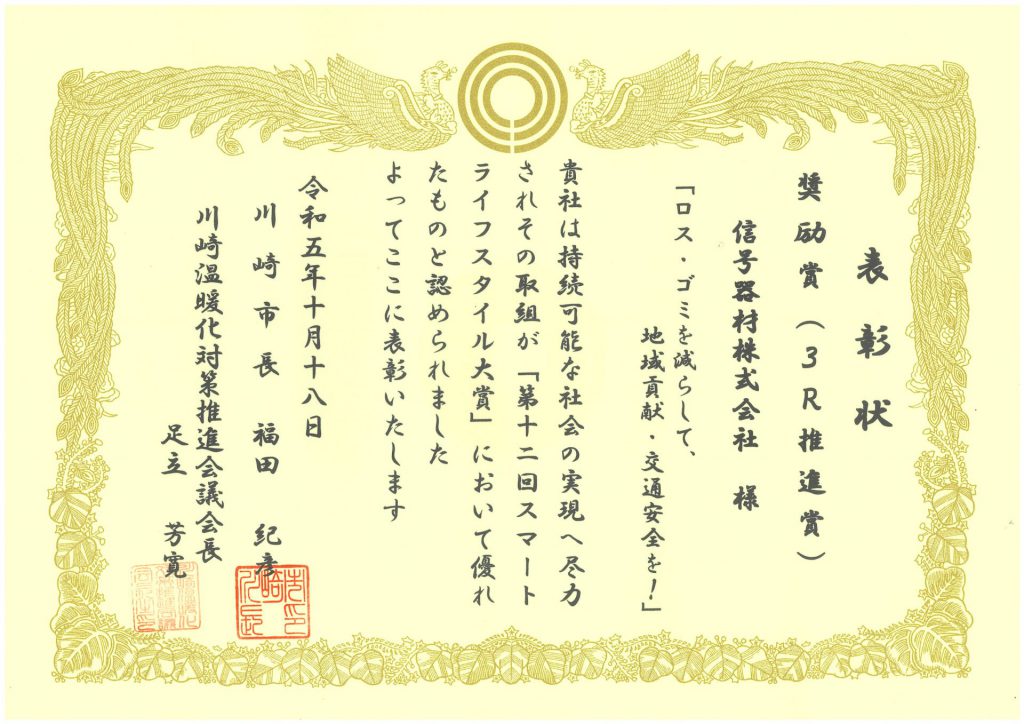 表彰状
奨励賞(3R推進賞)
信号器材株式会社 様
「ロス・ゴミを減らして、
地域貢献・交通安全を!」
貴社は持続可能な社会の実現へ尽力
されその取組が「第十二回スマート
ライフスタイル大賞」において優れ
たものと認められました
よってここに表彰いたします
令和五年十月十八日
川崎市長 福田 紀彦
川崎温暖化対策推進会議会長
足立 芳寛